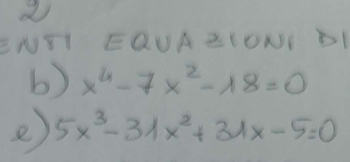 2
ENTI EQUAZIONI DI
b) x⁴-7x²-18=0
e) 5x³-31x²+31x-5=0